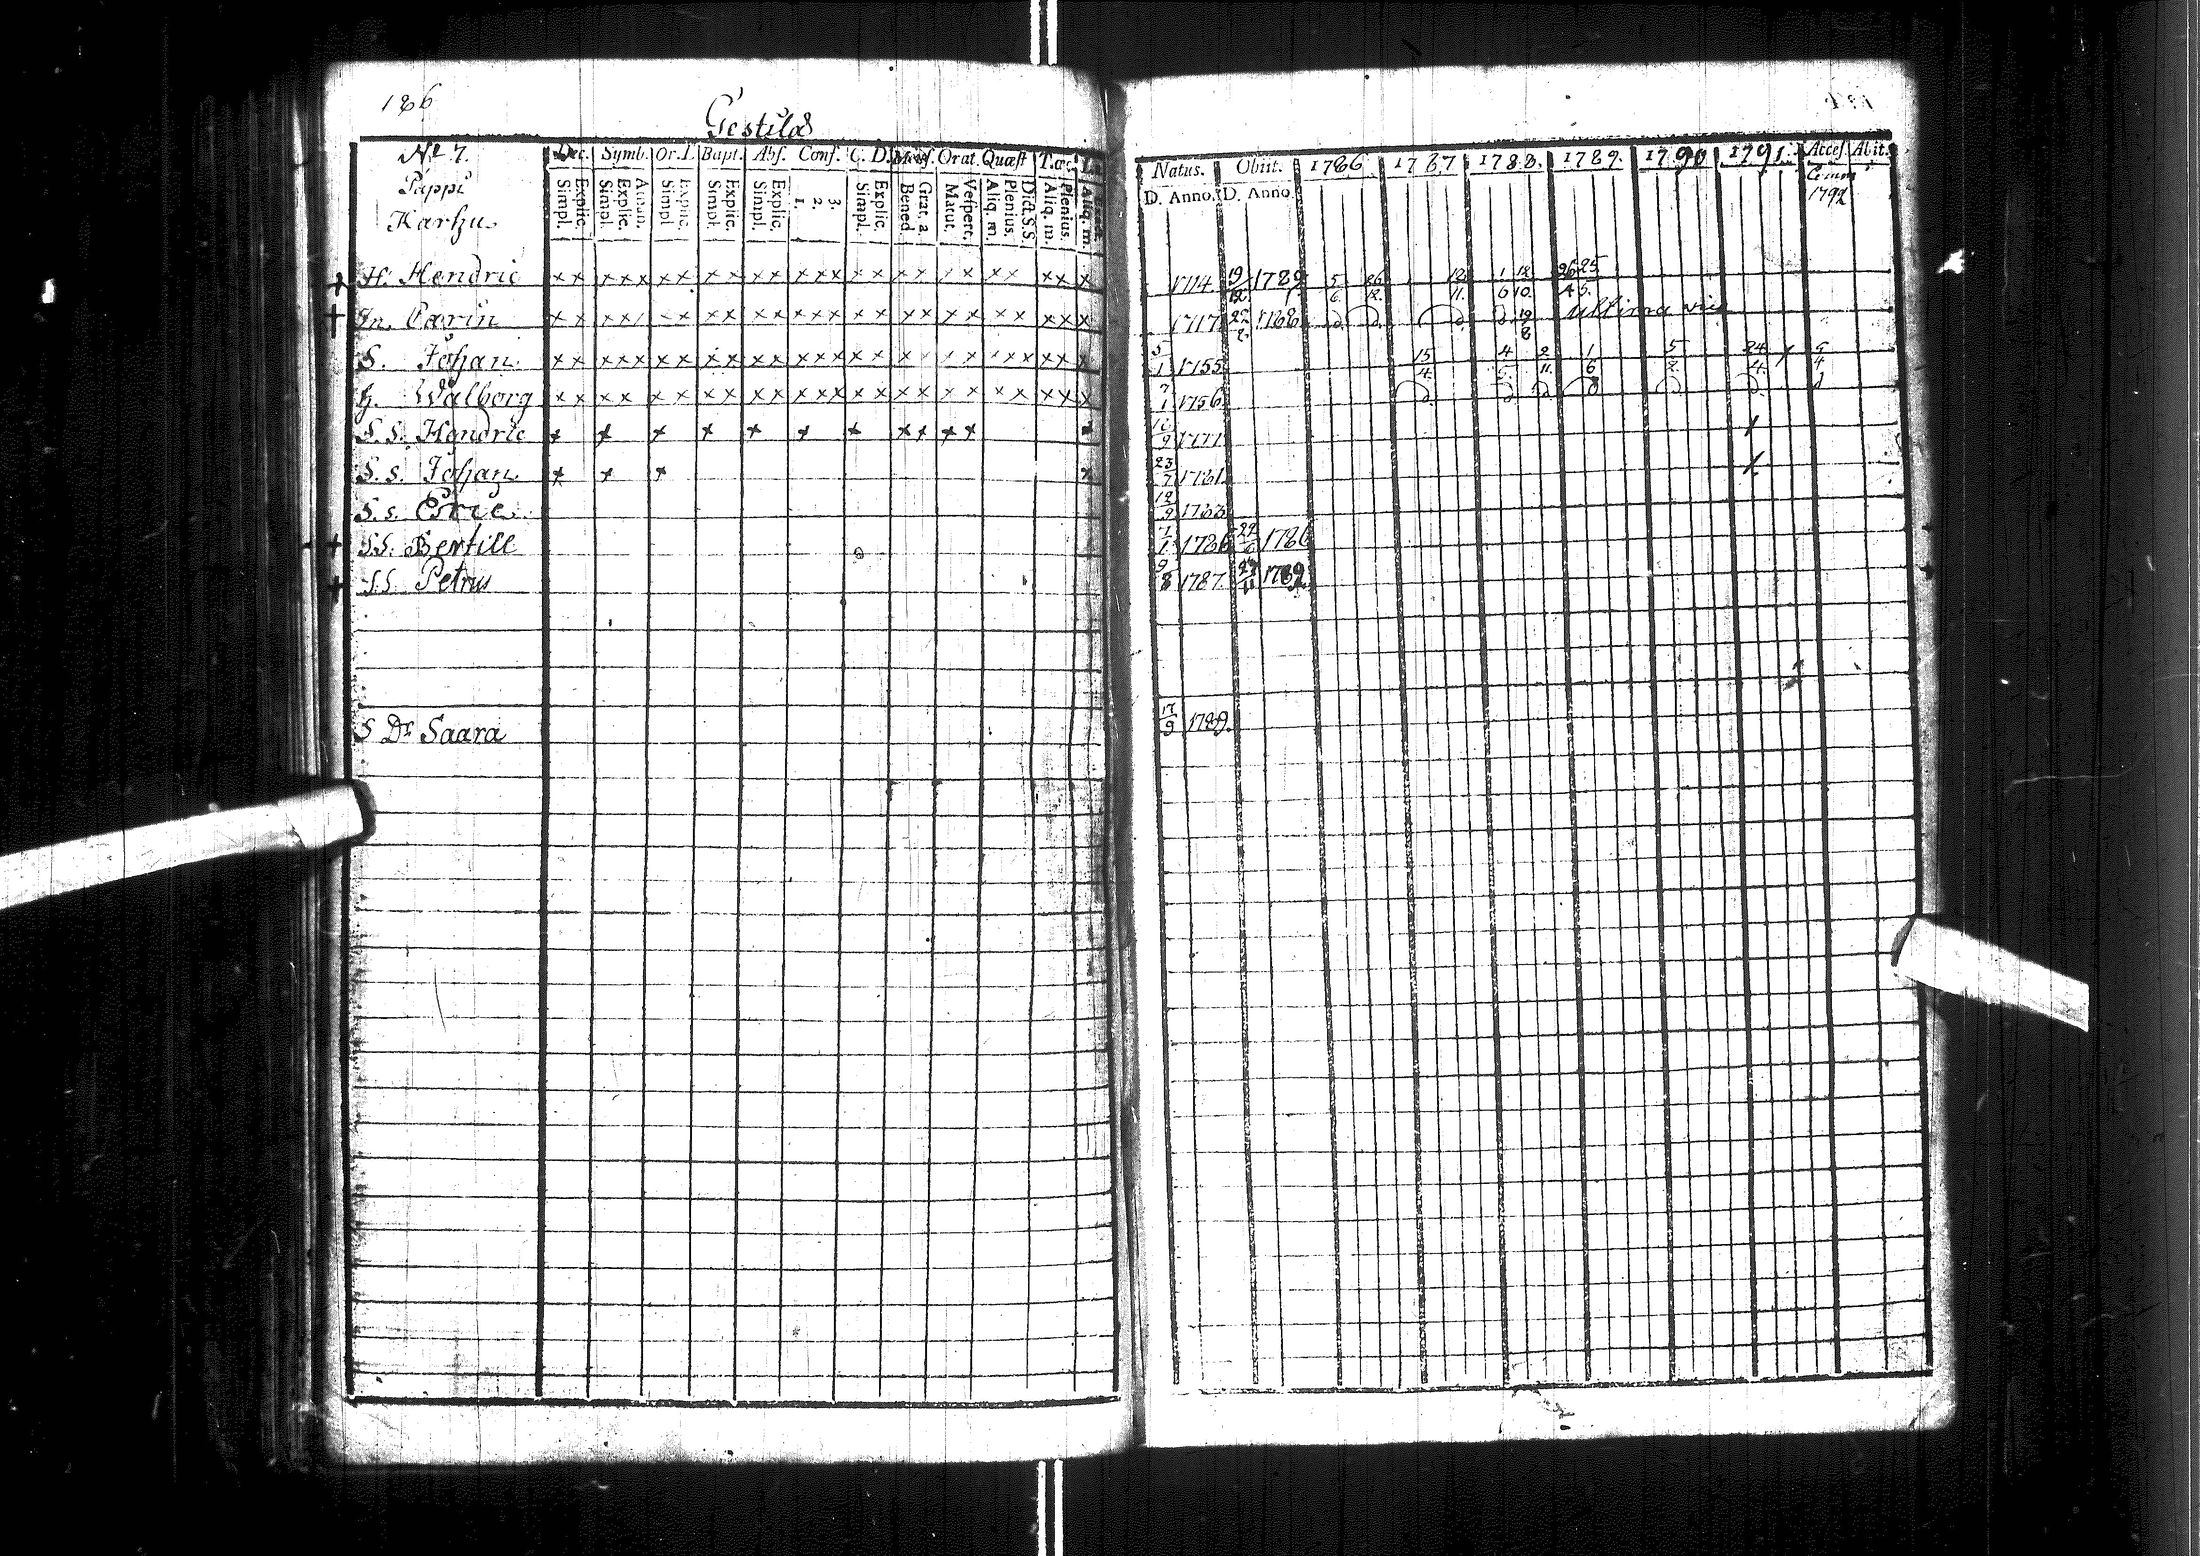 186
Gestilä
No 7. Dec. Symb. Or. D. Bapt. Abs. Conf. C. D. Mens. Orat. Quæst T.œc.
Pappi
Karhu
Explic. Simpl. Athan. Explic. Simpl. Explic. Simpl. Explic. Simpl. Explic. Simpl. 3. 2. 1. Explic. Simpl. Grat. a. Bened. Vesperc. Matut. Dict. S.S. Plenius. Aliq. m. Plenius. Aliq. m. Aliq. m.
H. Hendric x x x x x x x x x x x x x x x x x x x x x x x x x
Carin x x x x x x x x x x x x x x x x x x x x x x x
S. Johan x x x x x x x x x x x x x x x x x x x x x x x x x x
H. Walborg x x x x x x x x x x x x x x x x x x x x x x x x
S. s. Hendric x x x x x x x x x x x
S. s. Johan x x x x
S. s. Eric
S.S. Bertill
S.S. Petrus
S Dr Saara
Natus. Obiit. 1786 1787 1788. 1789. 1790 1791. Acces. Abit.
D. Anno. D. Anno. Comm 1792
1714. 19/12 1789 5/6 26/12 12/11. 1/6 12/10. 26/4 25/5.
1717. 1788 19/8 Ultima vice
5/1 1755 15/4. 2/11. 1/6 5/2 24/4. 5/4
7/1 1756
1777
23/7 1781.
12/9 1783
7/1 1786 22/6 1786
9/8 1787. 29/11 1789.
17/9 1789.